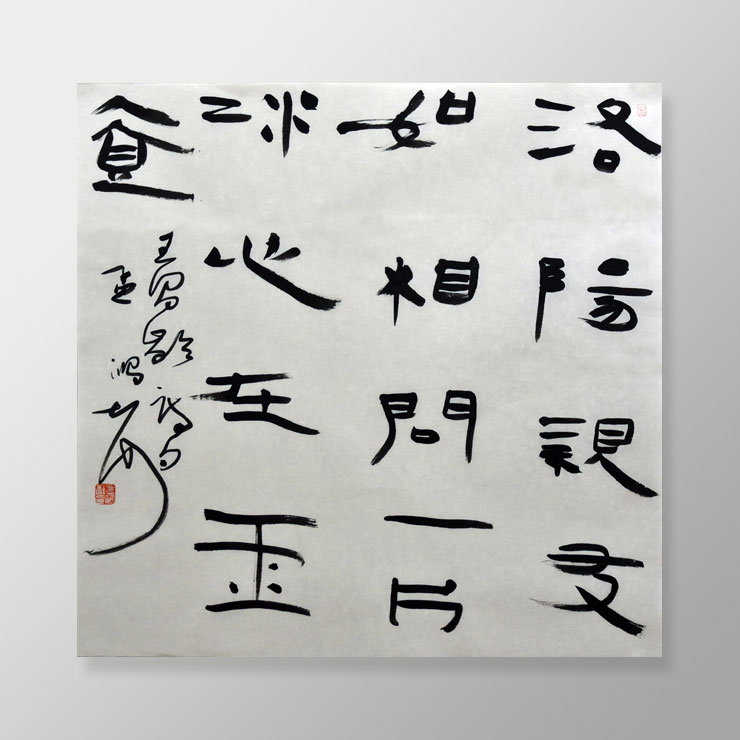 洛陽親友
如相問一片
冰心在玉
壺
王昌齡詩句
孟鴻声